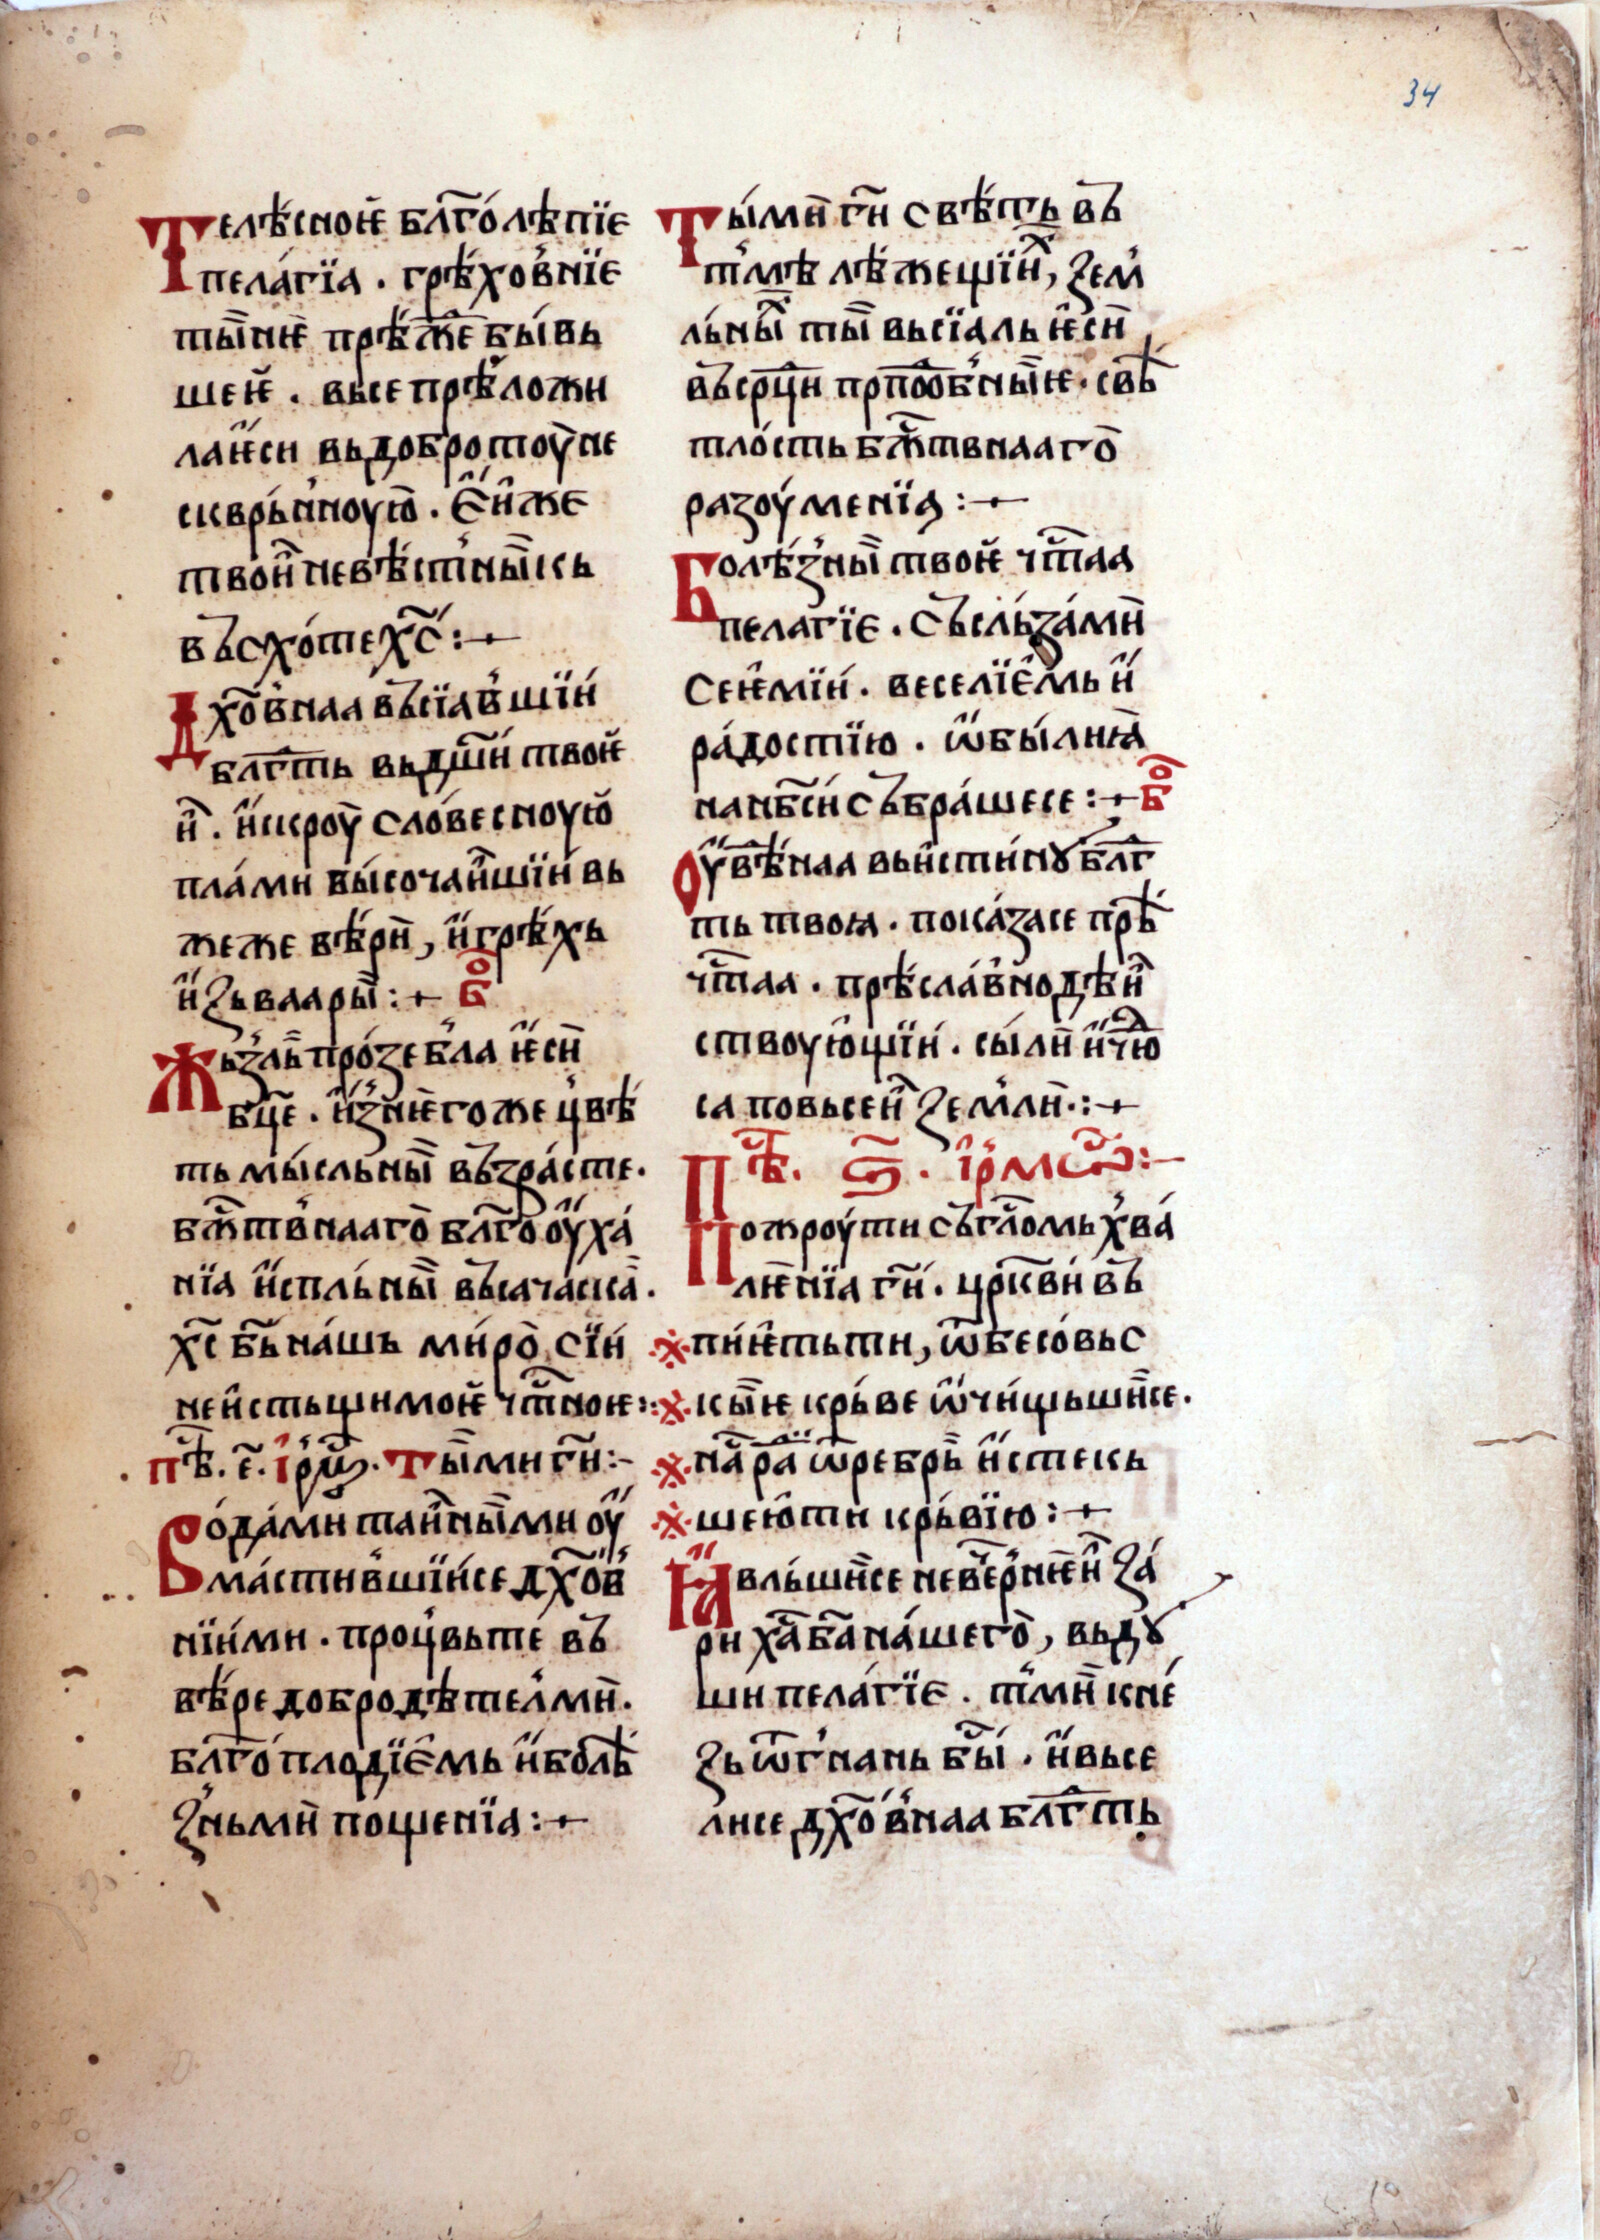 34
Телѣ́сноѥ бл҃го́лѣпїе
пела́гїа . грѣ́хов̾нїе
ты̏нѥ прѣж҃е бы́вь
шеѥ . вьсе прѣ̾ложи
ла ѥси вьдоброто́у не
скврь́н̾ноую̑ . Є҆и҆же
твои̏ невѣ́ст̾ны̏ кь
въсхо́те х҃с :+
Дх҃о́в̾наа въсїа́в̾шїи́
бл҃гть вьдш҃и́ твоѥ
и̏ . и҆скроу̀ сло́весноую̑
пла́ми высочаи̏шїи́ вь
жеже вѣ́рѝ, и҆ грѣ́хь
и҆зьваары̏ :+ б҃о
Жьзль̏ про́зебла ѥ҆сѝ
бц҃е . и҆з̾нѥгоже цвѣ́
ть мы́сльны̏ възра́сте .
бж҃тв̾нааго̀ бл҃го оу҆ха́
нїа и҆спль́ны̏ въсачаска̏ .
х҃с б҃ь на́шь ми́ро̀ сїи́
неи҆стьщимоѥ чт҃ноѥ :
пѣ̑ . е҃ . і҆рмо . Ты̏ми г҃и :-
Вода́ми таи̏ны̏ми оу҆
ма́стив̾шїи́се дх҃ов̾
нїи́ми . процвьте въ
вѣ́ре добродѣтел̾мѝ .
бл҃го́плодїе̑мь и҆ болѣ́
з̾ньмѝ пощенїа :+
Ты́мѝ г҃и свѣ́ть въ
т̾мѣ лѣжещїи̏х, зем̾
ль́ны̏х ты̏ вьсїаль ѥ҆сѝ
въсрц҃и прпⷣоб̾ны̏ѥ . свѣ́
тло́сть бж҃твнааго̀
разоу́менїа :+
Болѣ́з̾ны̏ твоѥ чт҃аа
пелагїе . съсльза́мѝ
сеѥ҆мїи́ . веселїе̑мь и҆
ра́достїю . ѡ҆бы́лниа̀
на нб҃си́ събра́шесе :+ б҃о
Оу҆вѣ́наа вьи҆сти́нꙋ бл҃г
ть твоꙗ . пока́засе прѣ́
чт҃аа . прѣ́сла́в̾но дѣи̏
ствоую̑щїи́ . сы́лѝ и҆ чю̑д
са по вьсеи̏ зем̾лѝ :+
Пѣ̑ . ѕ҃ . і҆рмѡс :-
Пожроу́ти съгл҃омь х̾ва́
лѥ̀нїа г҃и́ . црк҃ви́ въ
пи́ѥ҆ть ти, ѿбесо́вьс
кы̏ѥ крь́ве ѡ҆чи́щьши̏се .
на̏ ра̏ ѿребрь̏ и҆стекь
шею̑ти крь́вїю :+
Ꙗ҆вль́ши̏се невечⷬернѥи̏ за́
ри х҃а б҃а на́шего̀, вьдꙋ
ши пела́гїе . т̾мѝ кне́
зь ѿг̾нань бы̏ . и҆ вьсе
лисе дх҃о́в̾наа бл҃гть